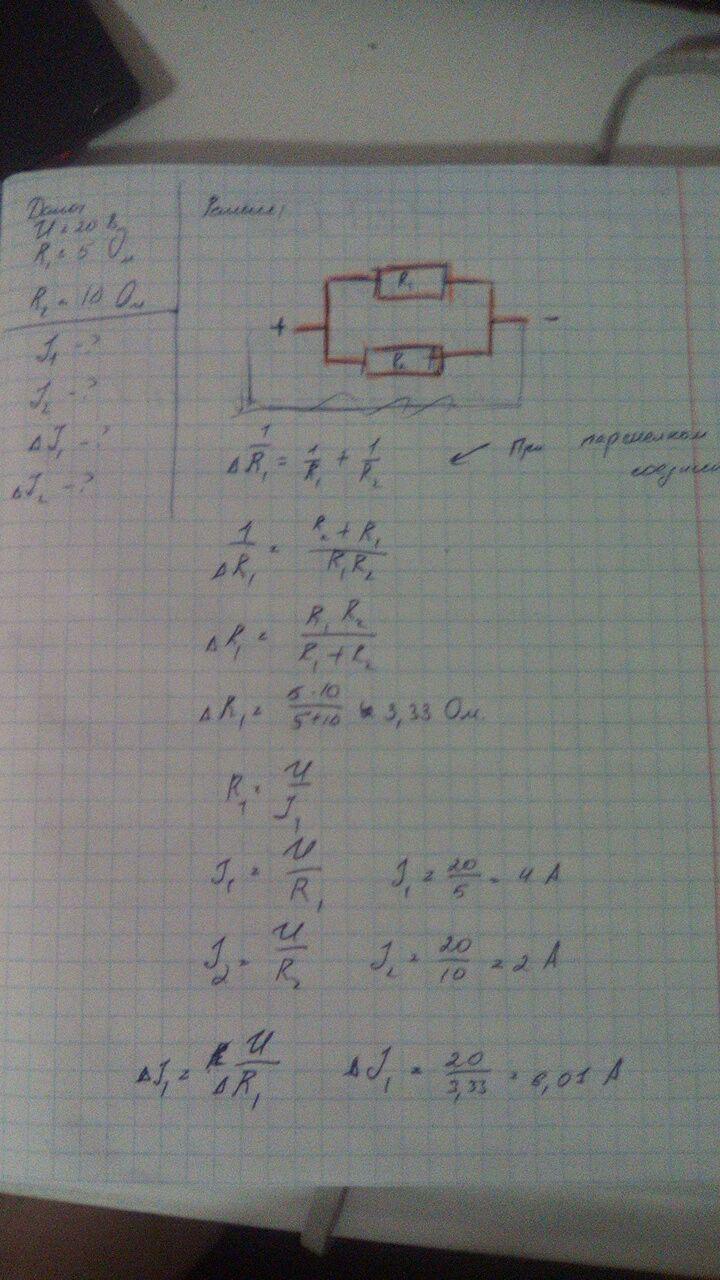 Дано:
U = 20 В
R₁ = 5 Ом
R₂ = 10 Ом
I₁ - ?
I₂ - ?
ΔI₁ - ?
ΔI₂ - ?
Решение:
R₁
+ −
R₂
1/ΔR₁ = 1/R₁ + 1/R₂ При
1/ΔR₁ = (R₂ + R₁)/(R₁R₂)
ΔR₁ = (R₁ R₂)/(R₁ + R₂)
ΔR₁ = (5·10)/(5+10) = 3,33 Ом.
R₁ = U/I₁
I₁ = U/R₁ I₁ = 20/5 = 4 А
I₂ = U/R₂ I₂ = 20/10 = 2 А
ΔI₁ = U/ΔR₁ ΔI₁ = 20/3,33 = 6,01 А